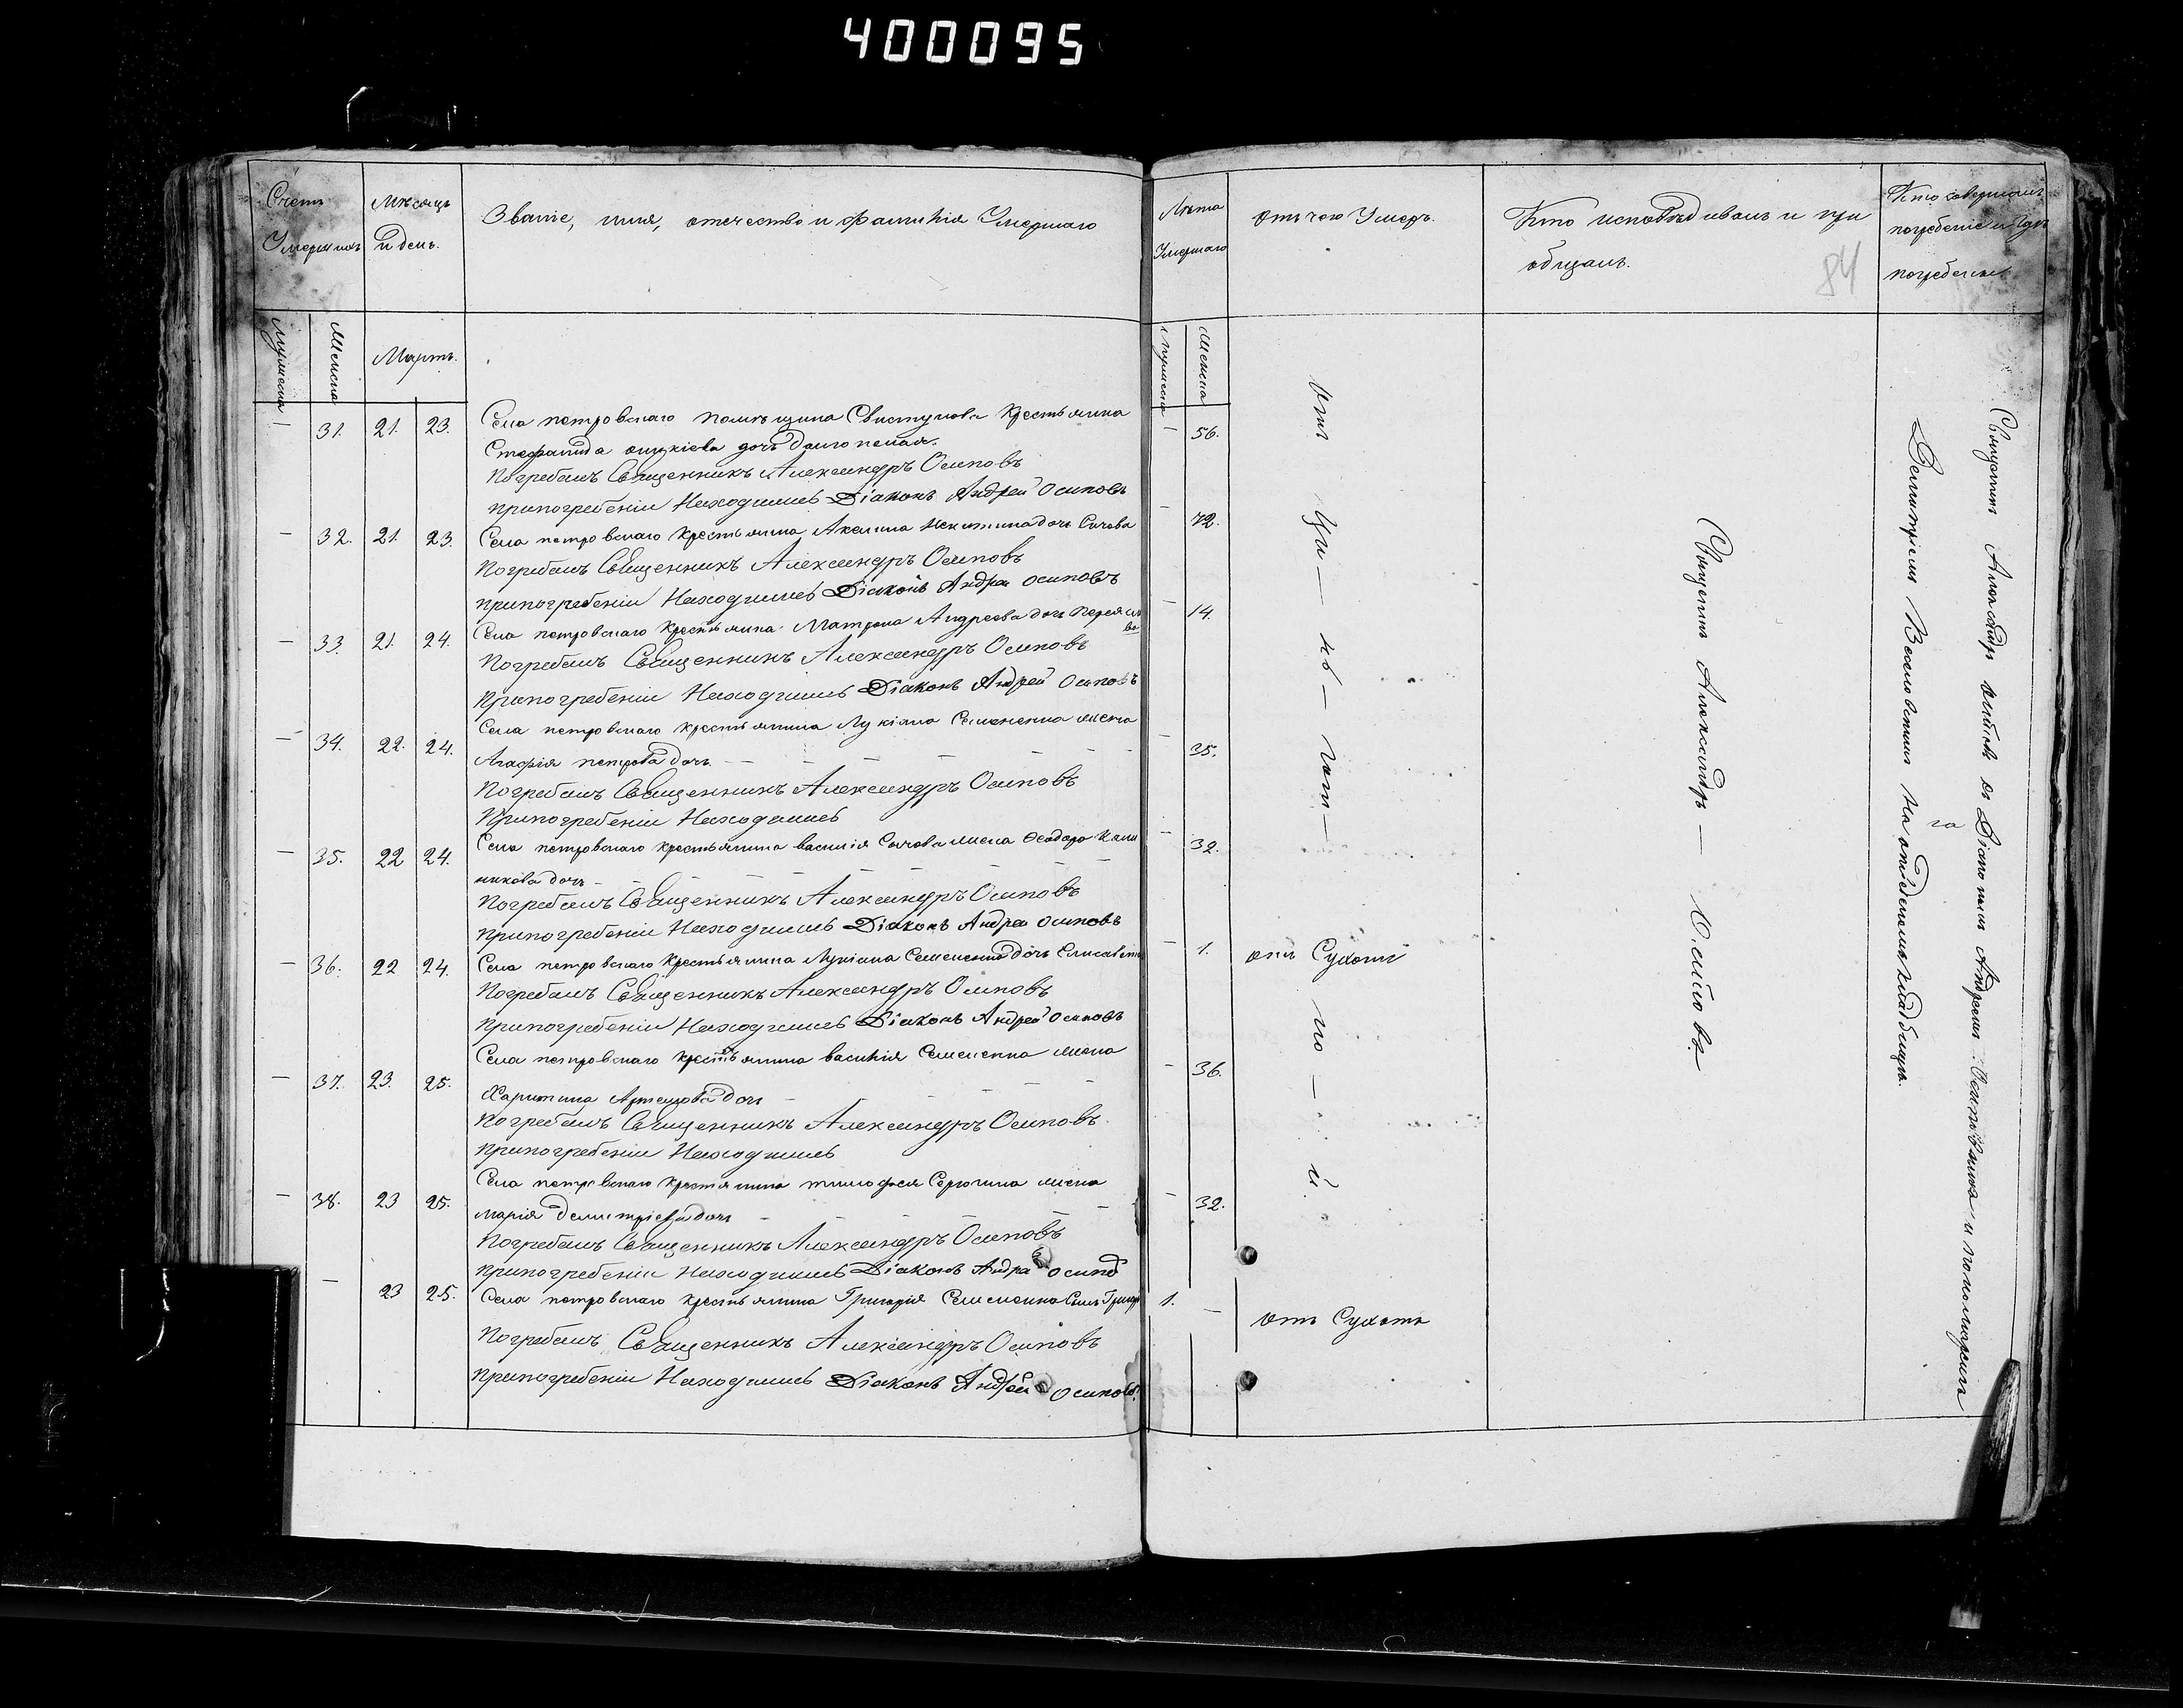 400095
Счетъ Умершихъ
Мѣсяцъ и день.
Званіе, имя, отечество и фамилія Умершаго
Лѣта Умершаго
отъ чего Умеръ.
Кто исповѣдывалъ и при
общалъ.
Кто совершалъ
погребеніе и гдѣ
погребены
84
Мужеска
Женска
Мартъ.
Мужеска
Женска
— 31. 21. 23. Села петровскаго помѣщика Свистунова Крестьянина — 56.
Стефанида дочь
Погребалъ Священникъ Александръ Осиповъ
при погребеніи Находились Діаконъ Андрей Осиповъ
— 32. 21. 23. Села петровскаго Крестьянина Акилина Никитина дочь Сычова — 72.
Погребалъ Священникъ Александръ Осиповъ
при погребеніи Находились Діаконъ Андрей Осиповъ
— 33. 21. 24. Села петровскаго Крестьянина Матрона Андреева дочь — 14.
Погребалъ Священникъ Александръ Осиповъ
При погребеніи Находились Діаконъ Андрей Осиповъ
— 34. 22. 24. Села петровскаго крестьянина Лукіана Семененка жена — 35.
Агафія петрова дочь —
Погребалъ Священникъ Александръ Осиповъ
При погребеніи Находились
— 35. 22 24. Села петровскаго крестьянина василія Сычова жена Феодора Кали — 32.
никова дочь —
Погребалъ Священникъ Александръ Осиповъ
при погребеніи Находились Діаконъ Андрей Осиповъ
— 36. 22 24. Села петровскаго Крестьянина Лукіана Семененка дочь Елисавета — 1. отъ Сухоти
Погребалъ Священникъ Александръ Осиповъ
при погребеніи Находились Діаконъ Андрей Осиповъ
— 37. 23. 25. Села петровскаго крестьянина василія Семененка жена — 36.
Харитина дочь —
Погребалъ Священникъ Александръ Осиповъ
при погребеніи Находились
— 38. 23 25. Села петровскаго Крестянина тимофея Серогина жена — 32.
марія демитріева дочь —
Погребалъ Священникъ Александръ Осиповъ
при погребеніи Находились Діаконъ Андрей Осиповъ
— 23 25. Села петровскаго крестьянина Григорія Семененка Сынъ Григорій 1. — отъ Сухоть
Погребалъ Священникъ Александръ Осиповъ
при погребеніи Находились Діаконъ Андрей Осиповъ.
отъ Ци — нь — гот — но — й.
Священникъ Александръ — Осиповъ
Священникъ Александръ Осиповъ съ Діакономъ Андреемъ Осиповымъ и пономаремъ
Демитріемъ на отведенномъ кладбищѣ.